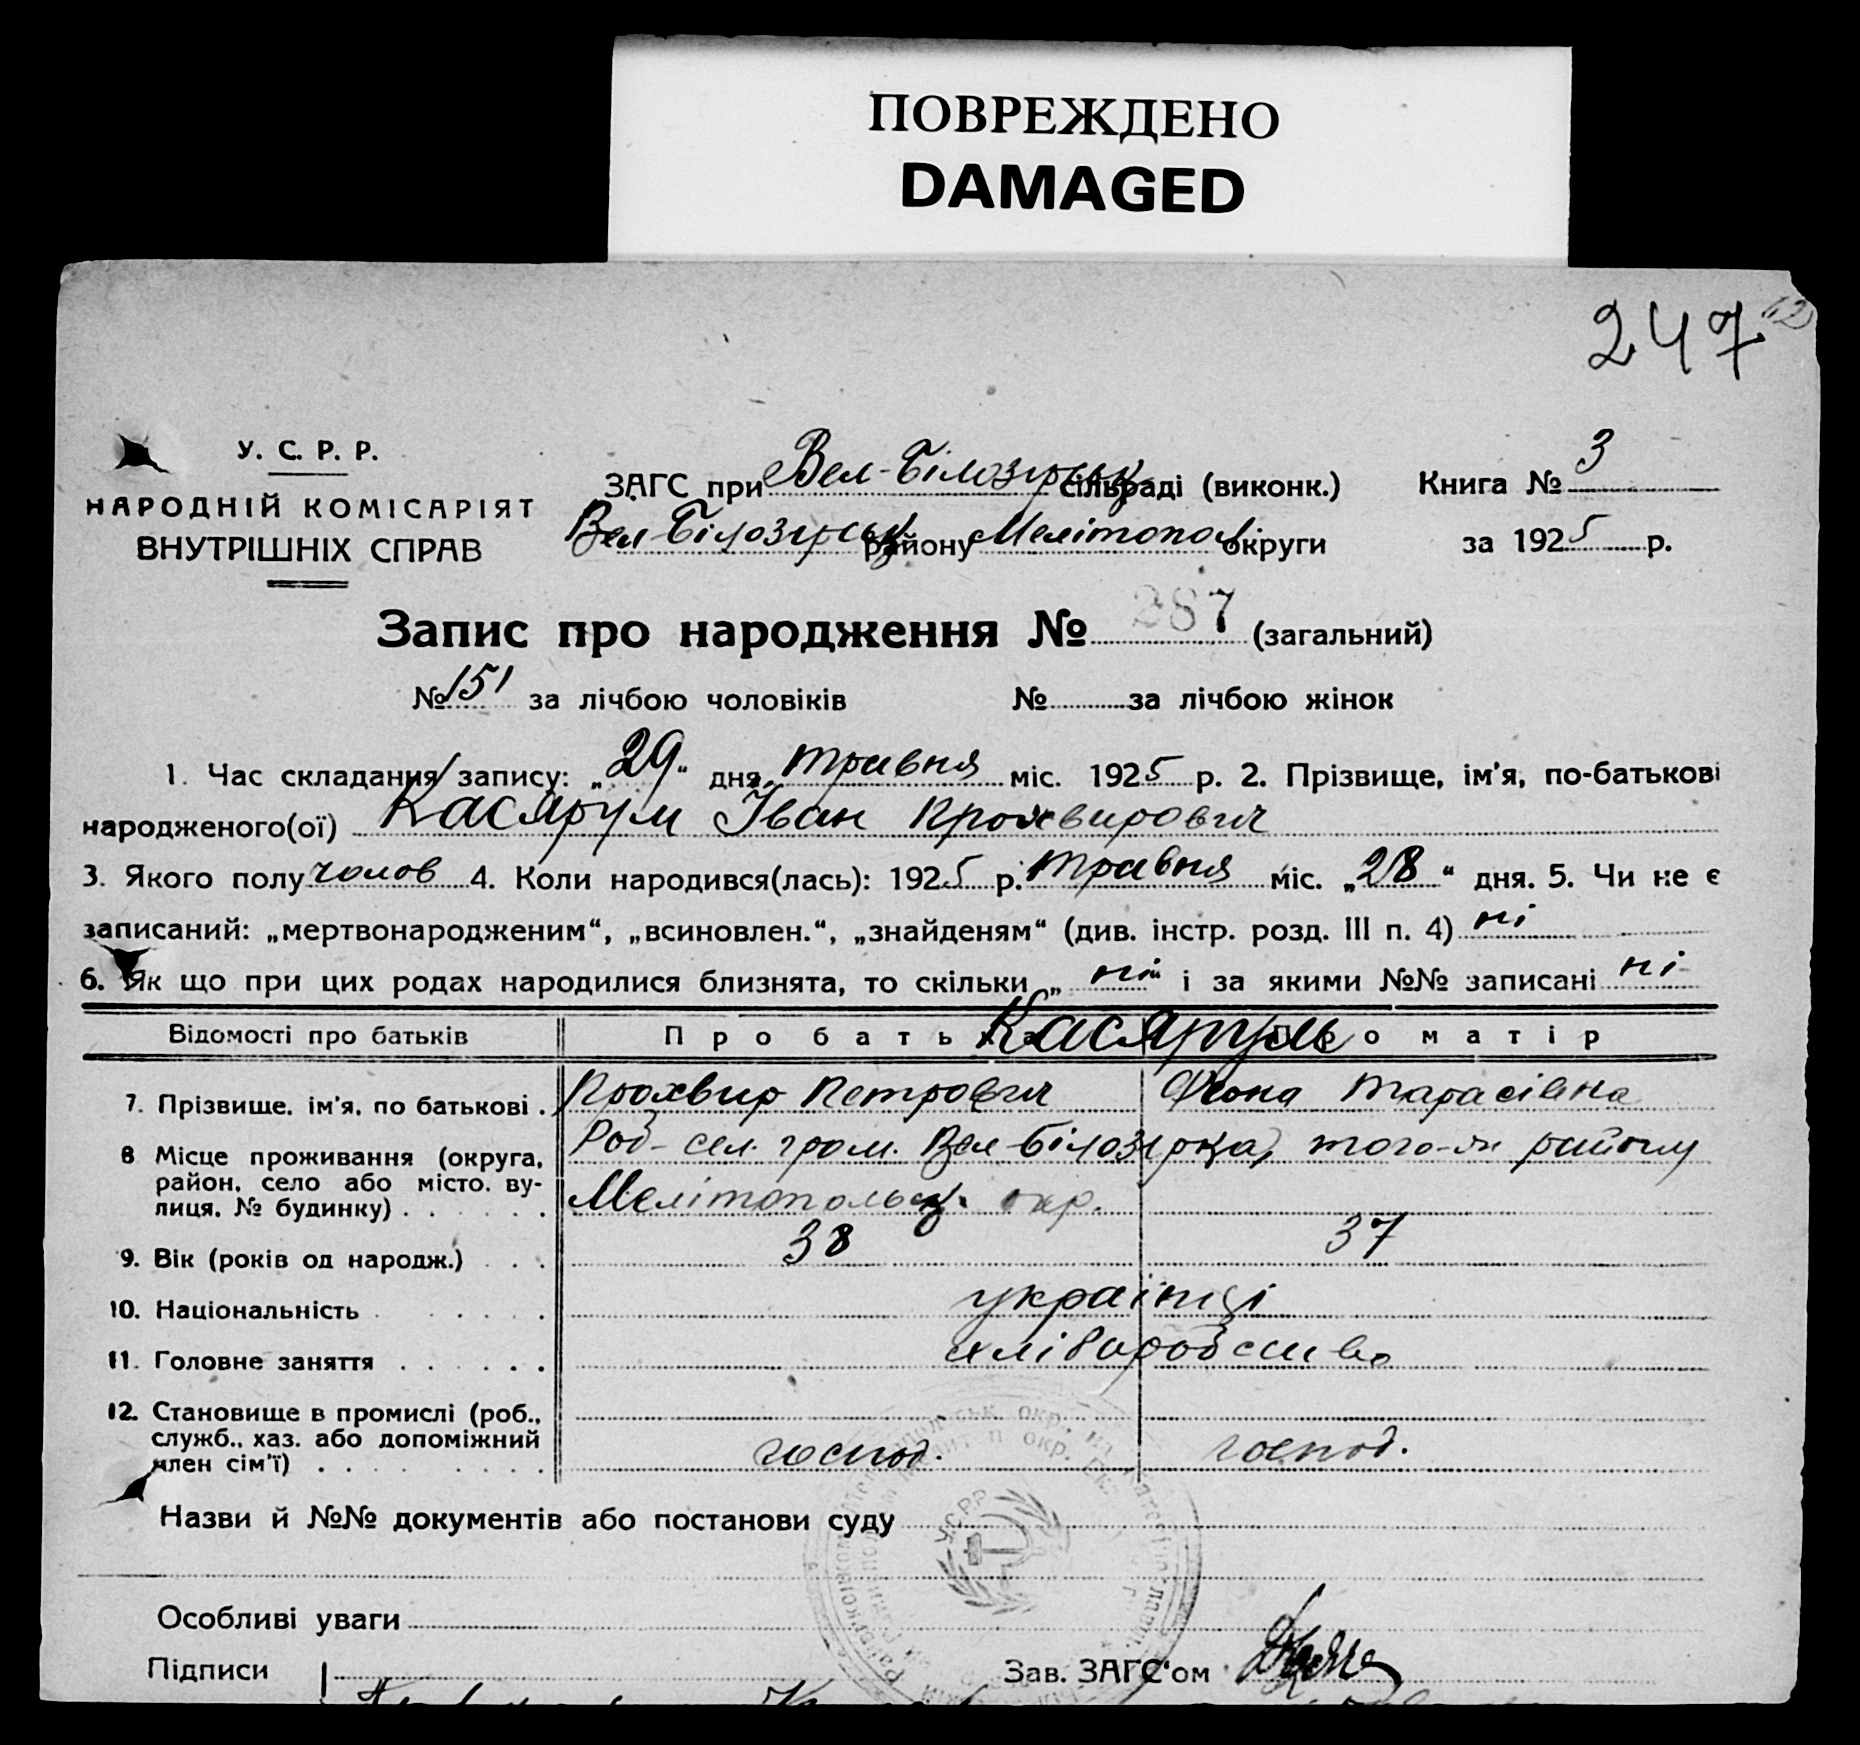 ПОВРЕЖДЕНО
DAMAGED
247
У. С. Р. Р.
НАРОДНІЙ КОМІСАРІЯТ
ВНУТРІШНІХ СПРАВ
ЗАГС при Вел-Білозірськ сільраді (виконк.)
Вел-Білозірськ району Мелітопол округи
Книга № 3
за 1925 р.
Запис про народження № 287 (загальний)
№ 151 за лічбою чоловіків № за лічбою жінок
1. Час складання запису: „29“ дня травня міс. 1925 р. 2. Прізвище, ім'я, по-батькові
народженого(ої) Касярум Іван Прохвирович
3. Якого полу чолов 4. Коли народився(лась): 1925 р. травня міс. „28“ дня. 5. Чи не є
записаний: „мертвонародженим“, „всиновлен.“, „знайденям“ (див. інстр. розд. III п. 4) ні
6. Як що при цих родах народилися близнята, то скільки „ні“ і за якими №№ записані ні
Відомості про батьків Про батька Про матір
Касярум
7. Прізвище, ім'я, по батькові . Прохвир Петрович Фіона Тарасівна
8 Місце проживання (округа, район, село або місто, вулиця, № будинку) . . . . . . Род- сел. гром. Вел-Білозірка, того-ж району
Мелітопольськ. окр.
9. Вік (років од народж.) . . . 38 37
10. Національність . . . . . українці
11. Головне заняття . . . . . . хліборобство
12. Становище в промислі (роб., служб., хаз. або допоміжний член сім'ї) . . . . . . . . господ. господ.
Назви й №№ документів або постанови суду
У.С.Р.Р.
Особливі уваги
Підписи Зав. ЗАГС'ом